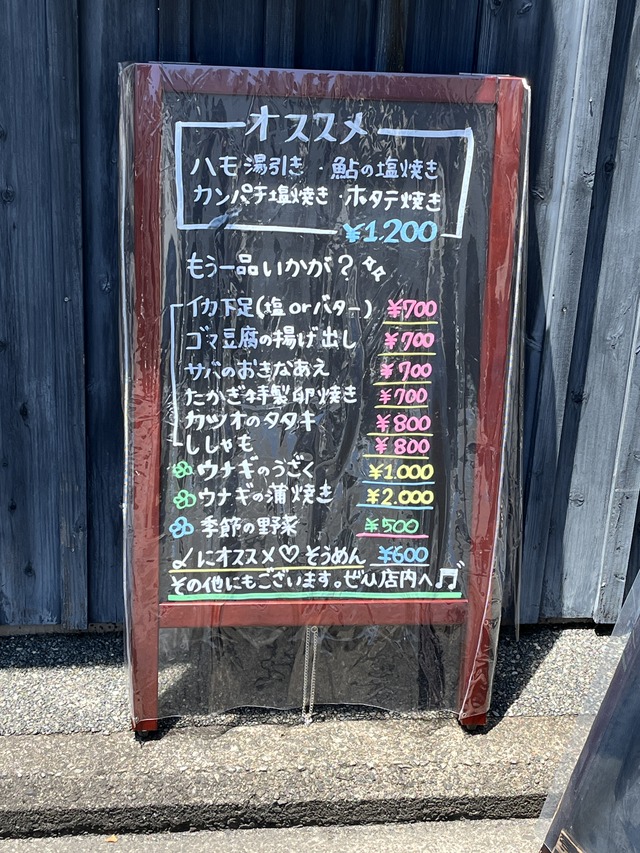 オススメ
ハモ湯引き・鮎の塩焼き
カンパチ塩焼き・ホタテ焼き
¥1,200
もう一品いかが?
イカ下足(塩orバター) ¥700
ゴマ豆腐の揚げ出し ¥700
サバのおきなあえ ¥700
たかぎ特製卵焼き ¥700
カツオのタタキ ¥800
ししゃも ¥800
ウナギのうざく ¥1,000
ウナギの蒲焼き ¥2,000
季節の野菜 ¥500
〆にオススメ♡そうめん ¥600
その他にもございます。ぜひ店内へ♫